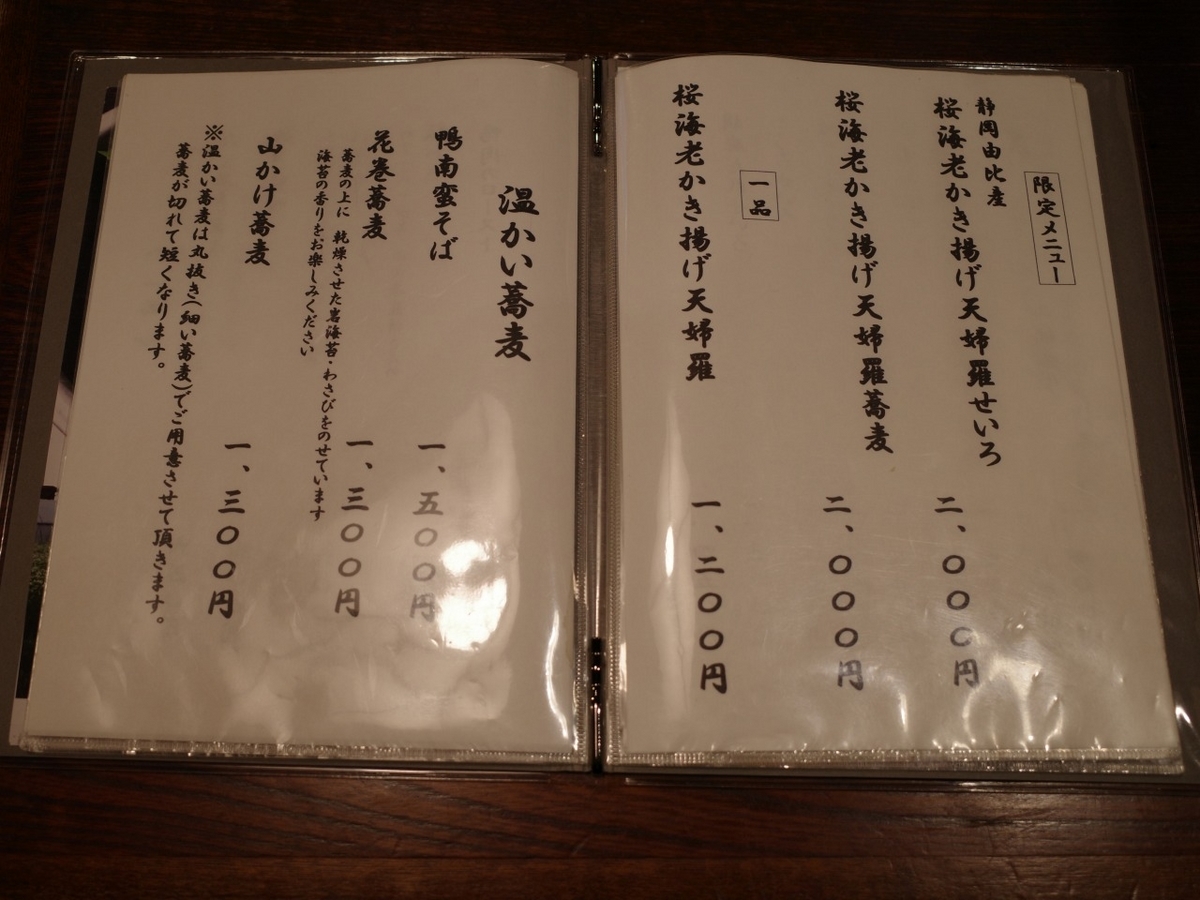 限定メニュー
静岡由比産
桜海老かき揚げ天婦羅せいろ
二、〇〇〇円
桜海老かき揚げ天婦羅蕎麦
二、〇〇〇円
一品
桜海老かき揚げ天婦羅
一、二〇〇円
温かい蕎麦
鴨南蛮そば
一、五〇〇円
花巻蕎麦
一、三〇〇円
蕎麦の上に 乾燥させた岩海苔・わさびをのせています
海苔の香りをお楽しみください
山かけ蕎麦
一、三〇〇円
※温かい蕎麦は丸抜き(細い蕎麦)でご用意させて頂きます。
蕎麦が切れて短くなります。